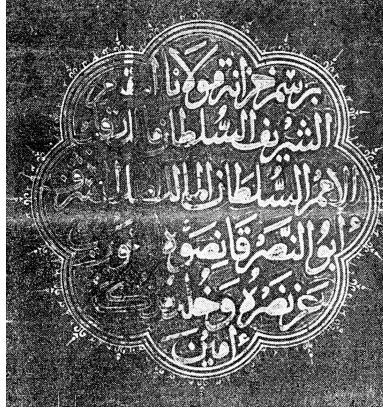 برسم خزانة مولانا المقام
الشريف السلطان
الاعظم السلطان المالك الملك الاشرف
أبو النصر قانصوه الغوري
عز نصره وخلد ملكه
آمين